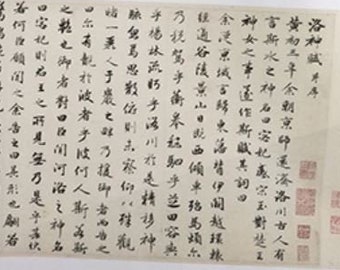 洛神賦 并序
黃初三年余朝京師還濟洛川古人有
言斯水之神名曰宓妃感宋玉對楚王
神女之事遂作斯賦其詞曰
余從京域言歸東藩背伊闕越轘轅
經通谷陵景山日既西傾車殆馬煩尒
乃稅駕乎蘅皋秣駟乎芝田容與
乎楊林流眄乎洛川於是精移神
駭忽焉思散俯則未察仰以殊觀
睹一異人于巖之畔乃援御者而告之
曰尔有覿於彼者乎彼何人斯若斯
之豔也御者對曰臣聞河洛之神名
曰宓妃則君王之所見無乃是乎其狀
若何臣願聞之余告之曰其形也翩若